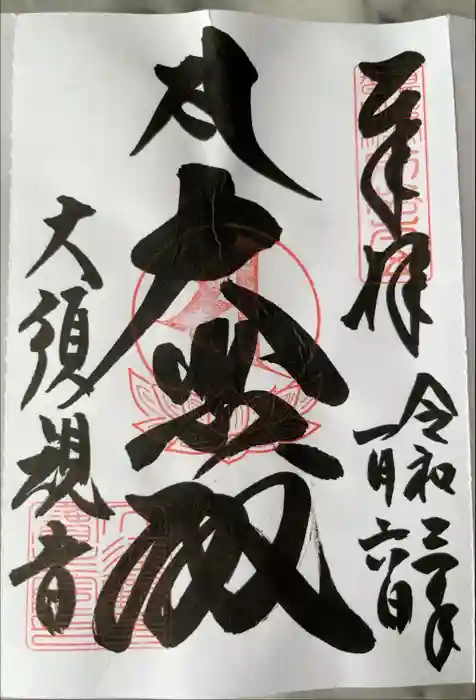 奉拝
令和三年
一月六日
大悲殿
大須観音